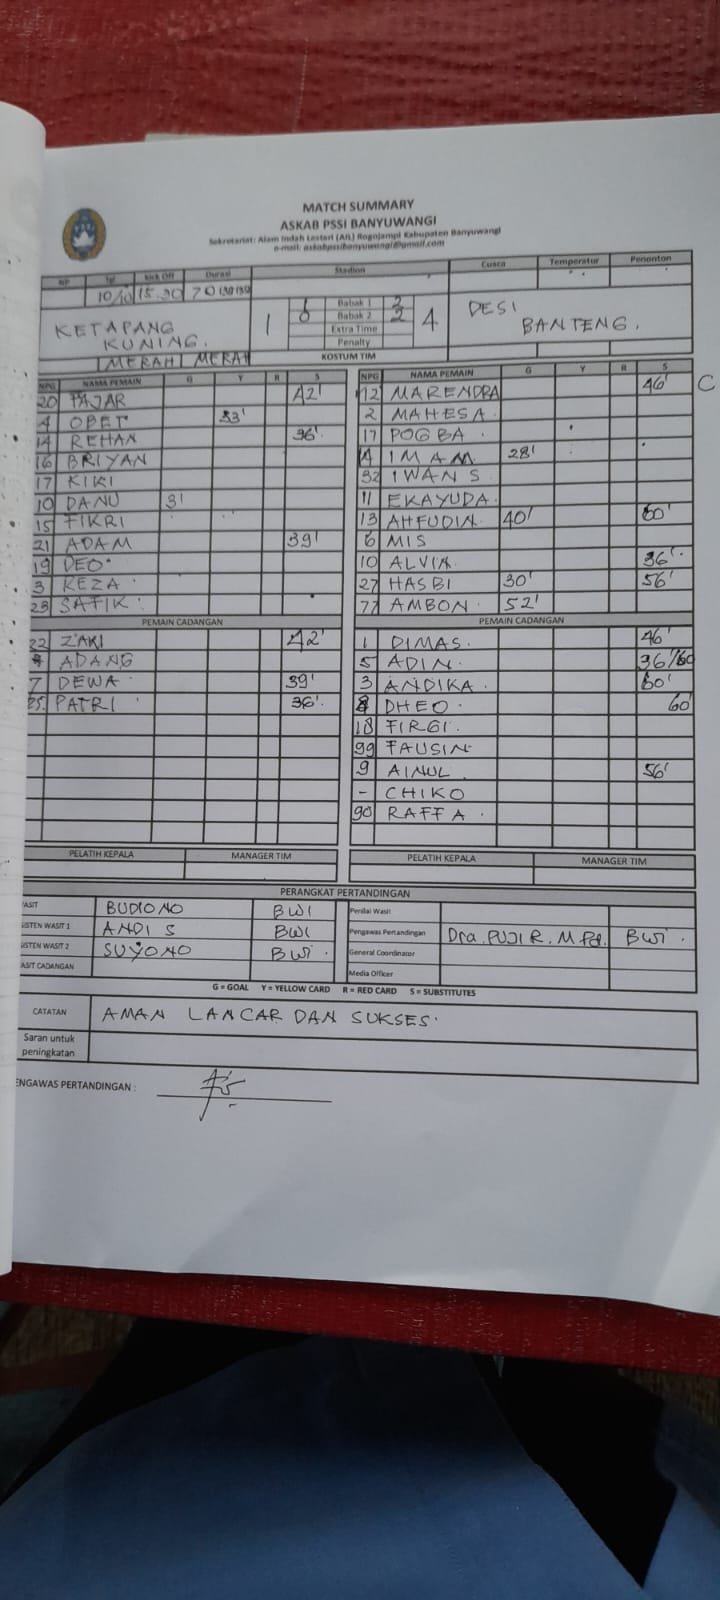 MATCH SUMMARY
ASKAB PSSI BANYUWANGI
Sekretariat: Alam Indah Lestari (AIL) Rogojampi Kabupaten Banyuwangi
e-mail: askabpssibanyuwangi@gmail.com
NP Tgl Kick Off Durasi Stadion Cuaca Temperatur Penonton
10/10 15.30 70
KETAPANG KUNING. 1 Babak 1 2 4 DESI BANTENG.
0 Babak 2 2
Extra Time
Penalty
MERAH MERAH KOSTUM TIM
NPG NAMA PEMAIN G Y R S NPG NAMA PEMAIN G Y R S
20 FAJAR 42' 12 MARENDRA 46' C
4 OBET 33' 2 MAHESA.
14 REHAN 36' 17 POGBA
16 BRIYAN 4 IMAM 28'
17 KIKI 32 IWAN S
10 DANU 3' 11 EKAYUDA.
15 FIKRI 13 AHFUDIN 40' 60'
21 ADAM 39' 6 MIS
19 DEO 10 ALVIN 36'
3 REZA 27 HASBI 30' 56'
23 SAFIK 77 AMBON 52'
PEMAIN CADANGAN PEMAIN CADANGAN
22 ZAKI 42' 1 DIMAS. 46'
ADANG 5 ADIN. 36'/60
7 DEWA 39' 3 ANDIKA. 60'
25. PATRI 36' DHEO 60'
18 FIRGI.
99 FAUSIN
9 AINUL 56'
- CHIKO
90 RAFFA
PELATIH KEPALA MANAGER TIM PELATIH KEPALA MANAGER TIM
PERANGKAT PERTANDINGAN
ASIT BUDIONO BWI Penilai Wasit
ISTEN WASIT 1 ANDI S BWI Pengawas Pertandingan Dra. PUJI R. M.Pd. BWI.
ISTEN WASIT 2 SUYONO BWI. General Coordinator
ASIT CADANGAN Media Officer
G = GOAL Y = YELLOW CARD R = RED CARD S = SUBSTITUTES
CATATAN AMAN LANCAR DAN SUKSES.
Saran untuk peningkatan
ENGAWAS PERTANDINGAN :